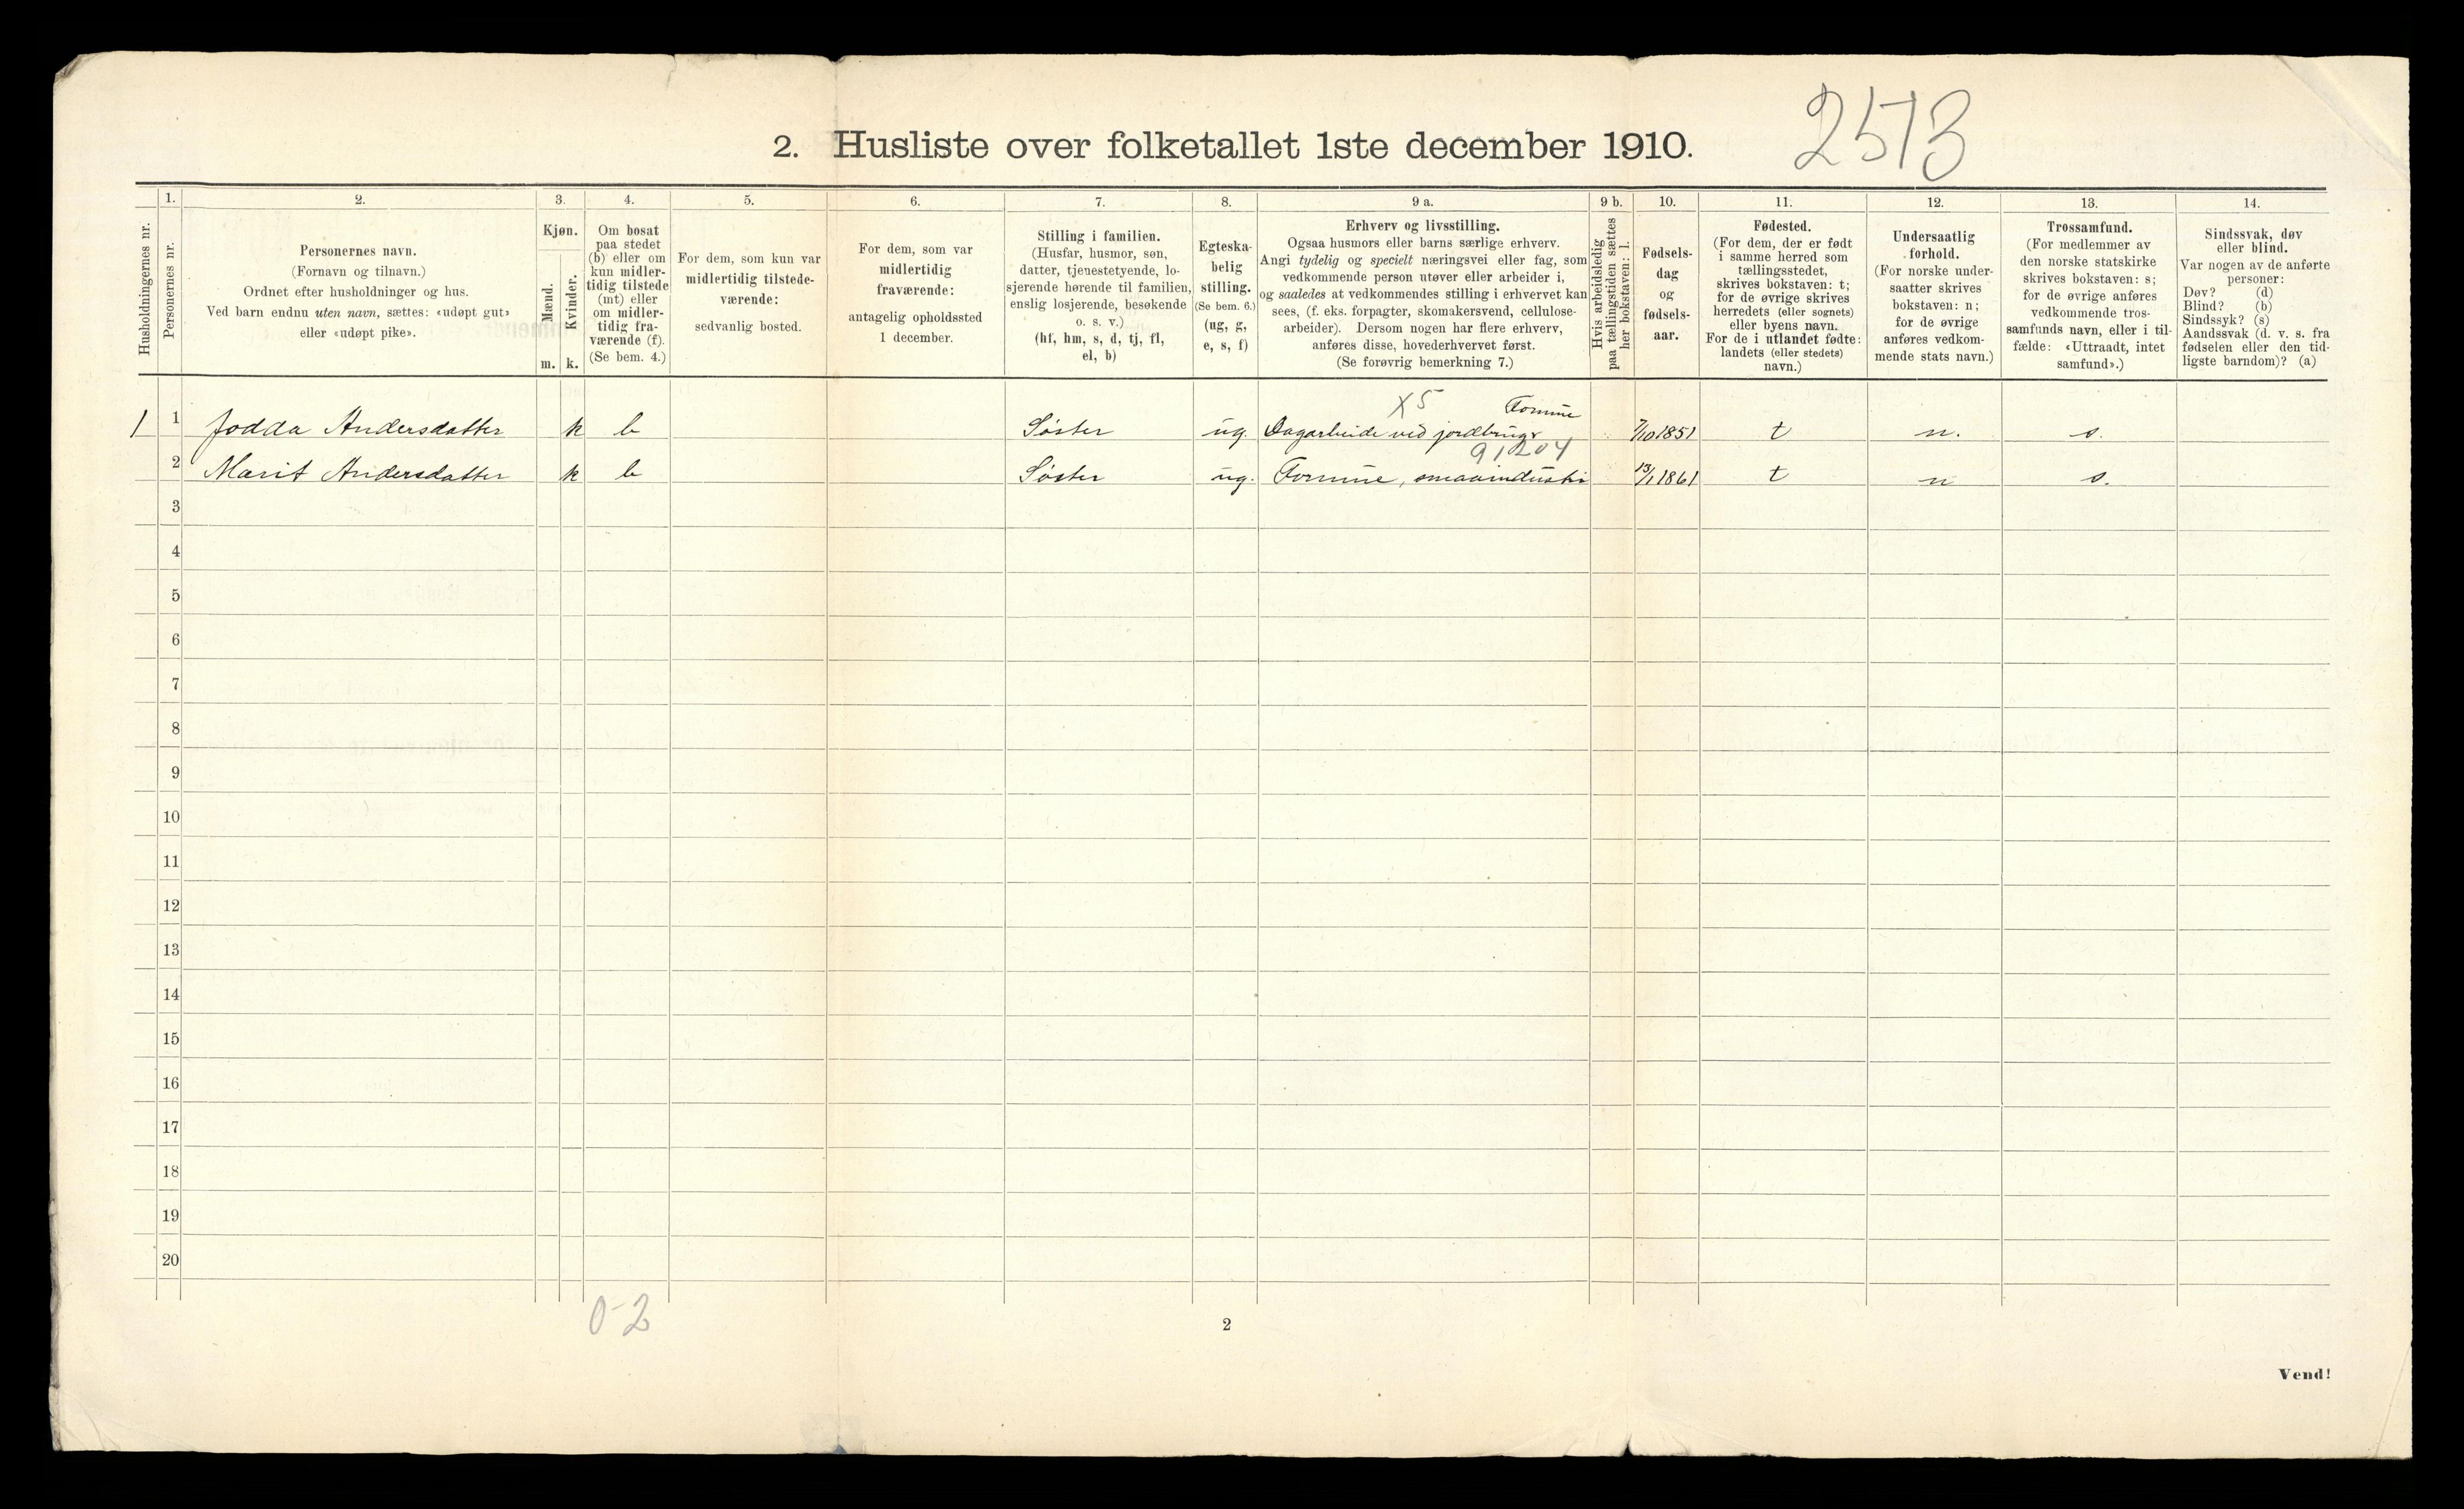 2513
2. Husliste over folketallet 1ste december 1910.
Husholdningernes nr.
1.
Personernes nr.
2.
Personernes navn.
(Fornavn og tilnavn.)
Ordnet efter husholdninger og hus.
Ved barn endnu uten navn, sættes: «udøpt gut»
eller «udøpt pike».
3.
Kjøn.
Mænd.
Kvinder.
m. k.
4.
Om bosat
paa stedet
(b) eller om
kun midler-
tidig tilstede
(mt) eller
om midler-
tidig fra-
værende (f).
(Se bem. 4.)
5.
For dem, som kun var
midlertidig tilstede-
værende:
sedvanlig bosted.
6.
For dem, som var
midlertidig
fraværende:
antagelig opholdssted
1 december.
7.
Stilling i familien.
(Husfar, husmor, søn,
datter, tjenestetyende, lo-
sjerende hørende til familien,
enslig losjerende, besøkende
o. s. v.)
(hf, hm, s, d, tj, fl,
el, b)
8.
Egteska-
belig
stilling.
(Se bem. 6.)
(ug, g,
e, s, f)
9 a.
Erhverv og livsstilling.
Ogsaa husmors eller barns særlige erhverv.
Angi tydelig og specielt næringsvei eller fag, som
vedkommende person utøver eller arbeider i,
og saaledes at vedkommendes stilling i erhvervet kan
sees, (f. eks. forpagter, skomakersvend, cellulose-
arbeider). Dersom nogen har flere erhverv,
anføres disse, hovederhvervet først.
(Se forøvrig bemerkning 7.)
9 b.
Hvis arbeidsledig
paa tællingstiden sættes
her bokstaven: l.
10.
Fødsels-
dag
og
fødsels-
aar.
11.
Fødested.
(For dem, der er født
i samme herred som
tællingsstedet,
skrives bokstaven: t;
for de øvrige skrives
herredets (eller sognets)
eller byens navn.
For de i utlandet fødte:
landets (eller stedets)
navn.)
12.
Undersaatlig
forhold.
(For norske under-
saatter skrives
bokstaven: n;
for de øvrige
anføres vedkom-
mende stats navn.)
13.
Trossamfund.
(For medlemmer av
den norske statskirke
skrives bokstaven: s;
for de øvrige anføres
vedkommende tros-
samfunds navn, eller i til-
fælde: «Uttraadt, intet
samfund».)
14.
Sindssvak, døv
eller blind.
Var nogen av de anførte
personer:
Døv? (d)
Blind? (b)
Sindssyk? (s)
Aandssvak (d. v. s. fra
fødselen eller den tid-
ligste barndom)? (a)
X5
1 1 Jodda Andersdatter k b Søster ug. Dagarbeide ved jordbrug 7/10 1851 t n. s.
91204
2 Marit Andersdatter k b Søster ug. smaaindustri 13/1 1861 t n s.
3
4
5
6
7
8
9
10
11
12
13
14
15
16
17
18
19
20
0-2
2
Vend!